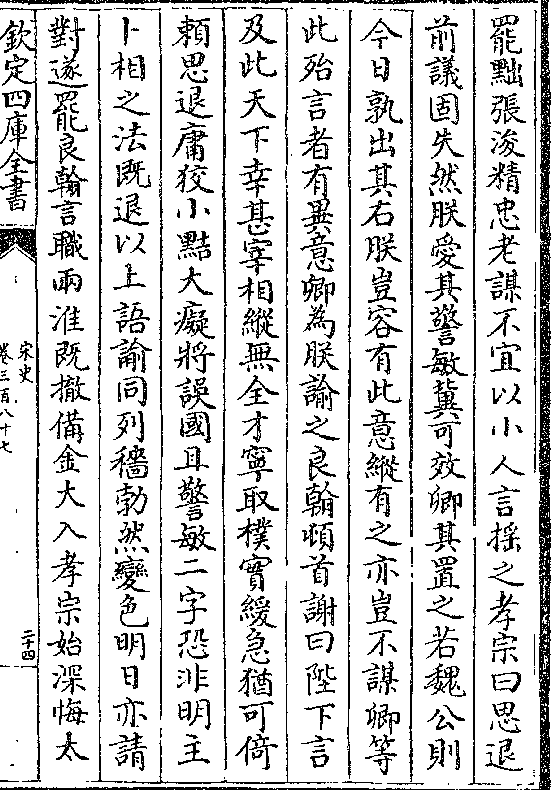 罷黜張浚精忠老謀不宜以小人言揺之孝宗曰思退
前議固失然朕愛其警敏冀可效卿其置之若魏公則
今日孰出其右朕豈容有此意縱有之亦豈不謀卿等
此殆言者有異意卿為朕諭之良翰頓首謝曰陛下言
及此天下幸甚宰相縱無全才寧取樸實緩急猶可倚
頼思退庸狡小黠大癡將誤國且警敏二字恐非明主
卜相之法既退以上語諭同列穡勃然變色明日亦請
對遂罷良翰言職兩淮既撤備金大入孝宗始深悔太
欽定四庫全書
宋史
卷三百八十七
二十四